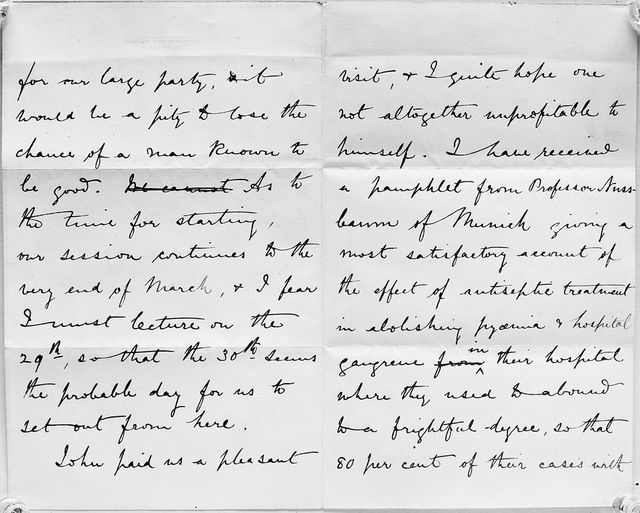 for our large party, it
would be a pity to lose the
chance of a man known to
be good. We cannot As to
the time for starting,
our session continues to the
very end of March, & I fear
I must lecture on the
29th, so that the 30th seems
the probable day for us to
set out from here.
John paid us a pleasant
visit, & I quite hope one
not altogether unprofitable to
himself. I have received
a pamphlet from Professor Nuss-
baum of Munich giving a
most satisfactory account of
the effect of antiseptic treatment
in abolishing pyæmia & hospital
gangrene from in their hospital
where they used to abound
to a frightful degree, so that
80 per cent of their cases with